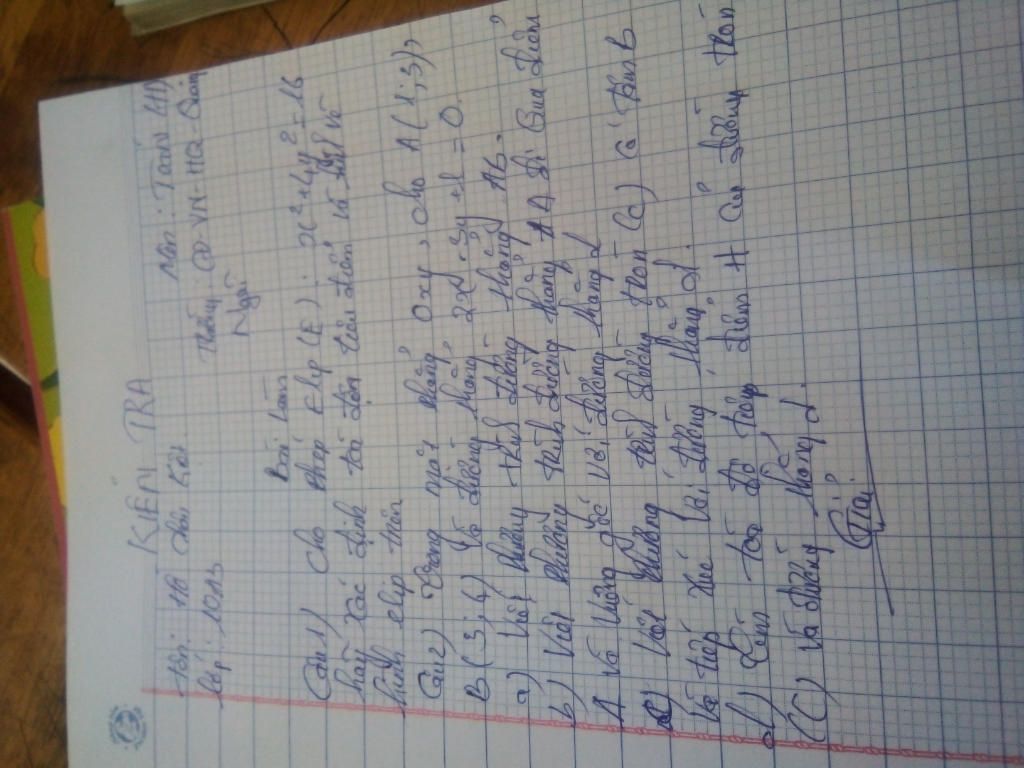 KIỂM TRA
Tên: Hồ Chí Môn: Toán
Lớp: 10A3
Bài làm
Câu 1) Cho elip (E): x²+4y²=16
hãy xác định tọa độ tiêu điểm và vẽ
hình elip trên
Câu 2) Trong mặt phẳng Oxy, cho A(1;3),
B(3;4) và đường thẳng 2x-3y+1=0.
a) Viết phương trình đường thẳng AB.
b) Viết phương trình đường thẳng Δ đi qua điểm
A và vuông góc với đường thẳng d
c) Viết phương trình đường tròn (C) có tâm B
và tiếp xúc với đường thẳng d.
d) Tìm tọa độ tiếp điểm H của đường tròn
(C) và đường thẳng d.
Giải